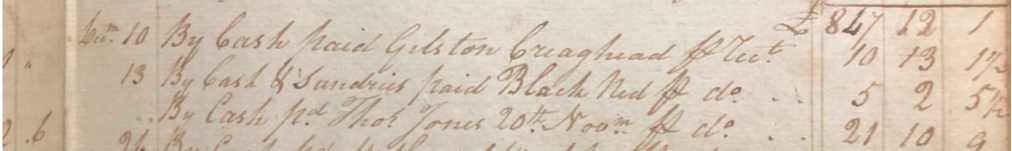 £ 847 12 1
Decm. 10 By Cash paid Gilston Creaghead ℔ Rect. 10 13 1½
" 13 By Cash & Sundries paid Black Ned ℔ do. .. 5 2 5½
.. By Cash pd. Thos. Jones 20th. Novm. ℔ do. .. 21 10 9
2 . 6 26 By Cash pd.